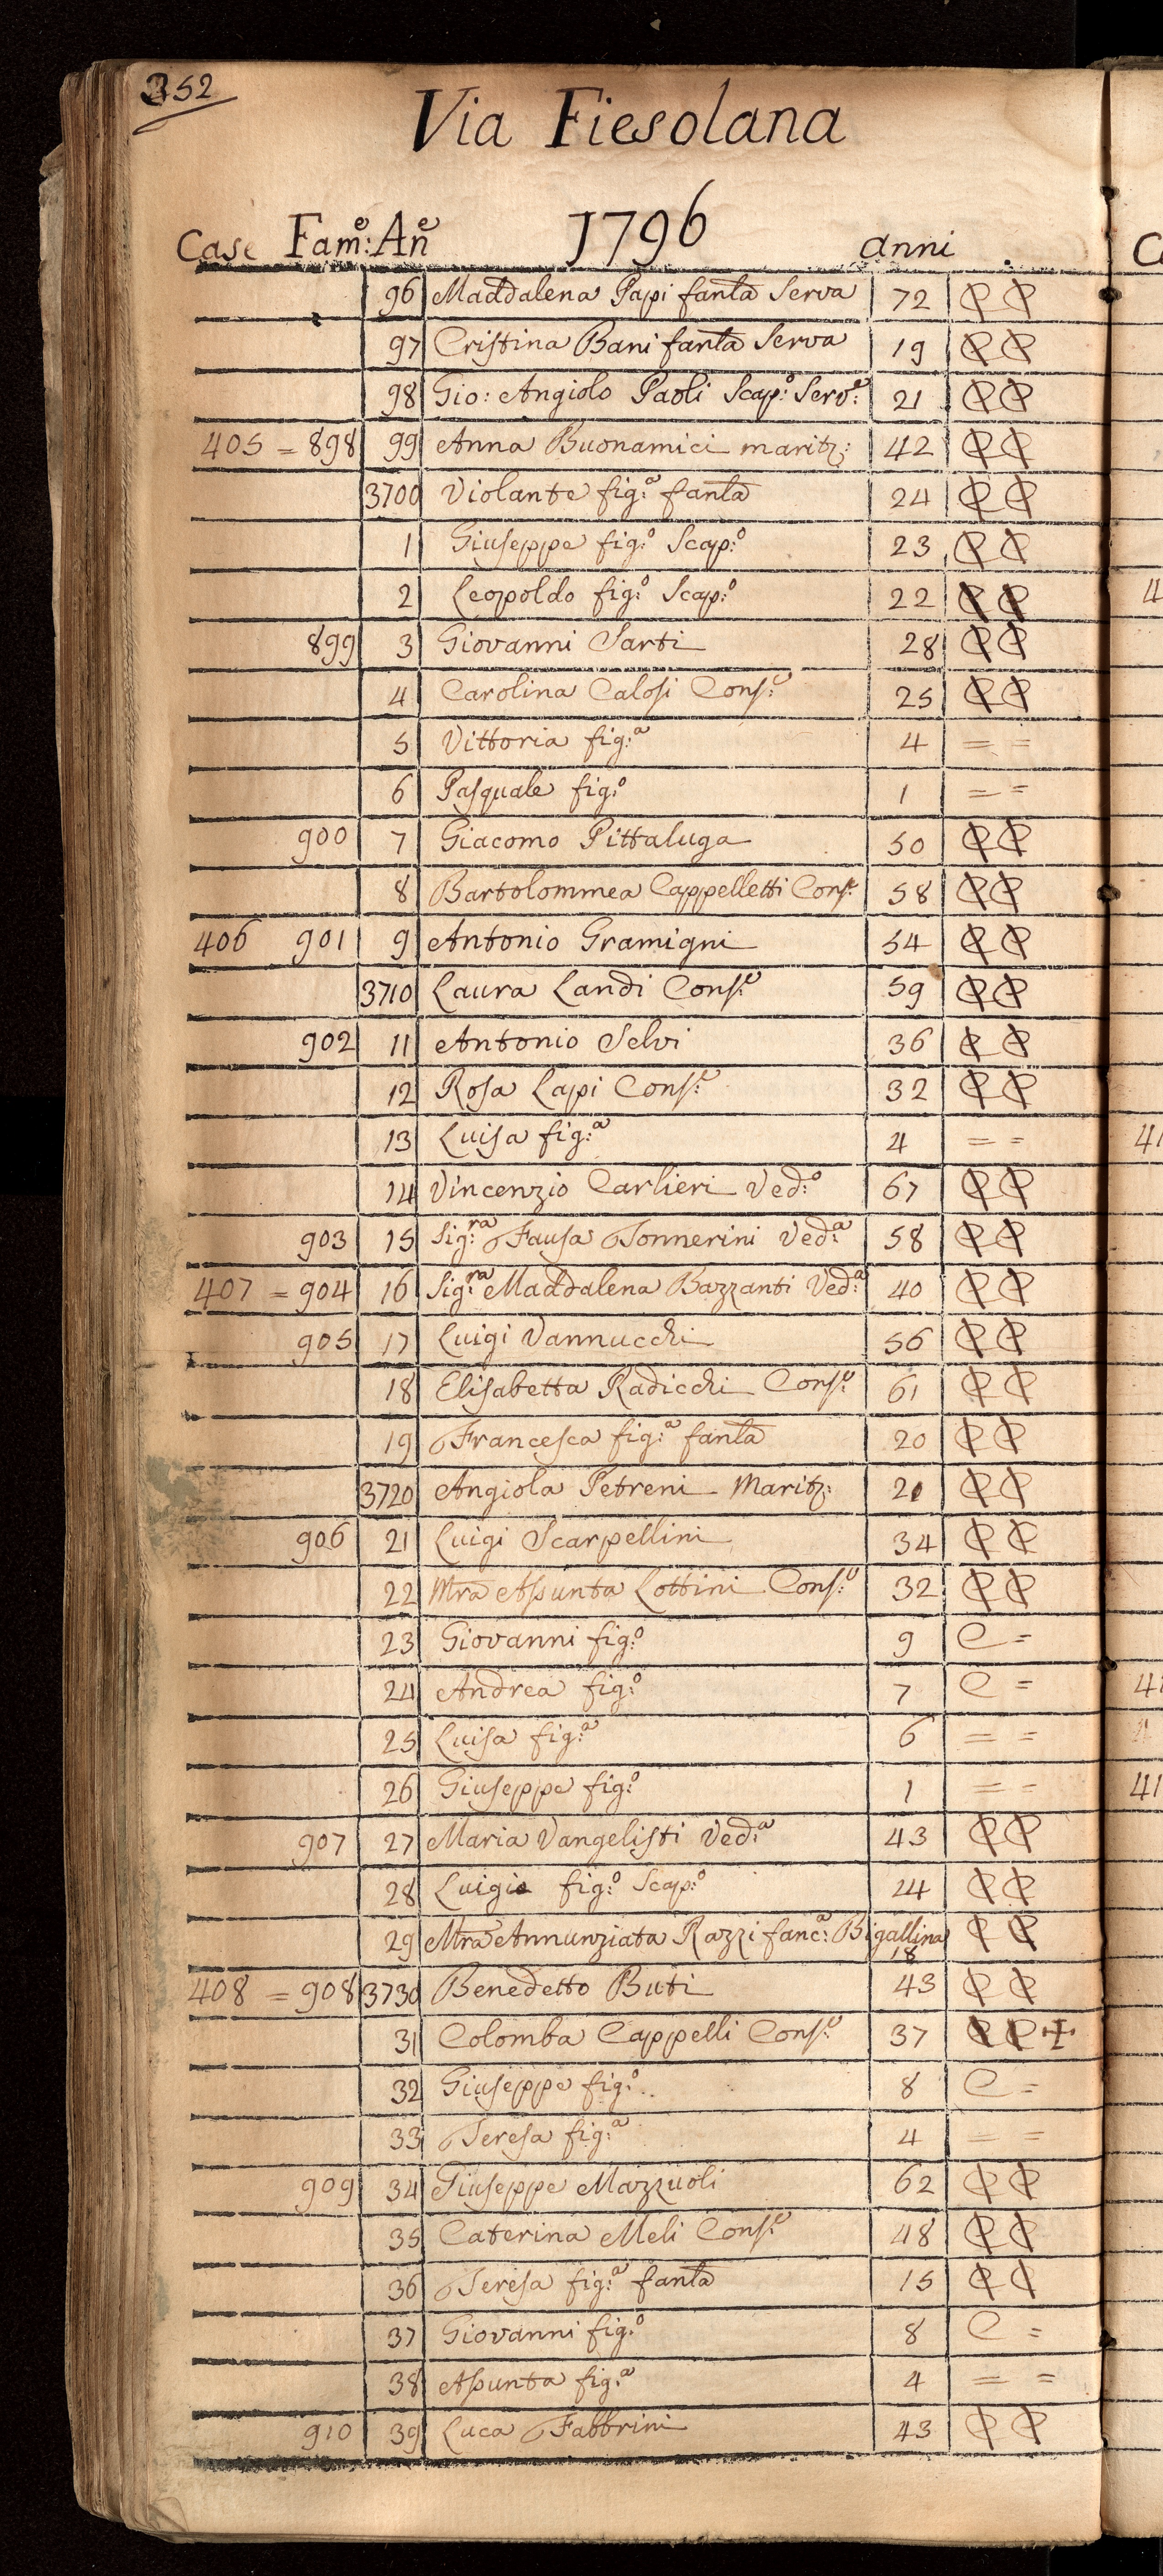 352
Via Fiesolana
1796
Case Fam:e An:e anni
96 Maddalena Papi fanla Serva 72 CC
97 Cristina Bani fanla Serva 19 CC
98 Gio: Angiolo Paoli Scap:o Serv:e 21 CC
405 = 898 99 Anna Buonamici maritz: 42 CC
3700 Violante fig:a fanla 24 CC
1 Giuseppe fig:o Scap:o 23 CC
2 Leopoldo fig:o Scap:o 22 CC
899 3 Giovanni Sarti 28 CC
4 Carolina Calosi Cons:e 25 CC
5 Vittoria fig:a 4 = =
6 Pasquale fig:o 1 = =
900 7 Giacomo Pittaluga 50 CC
8 Bartolommea Cappelletti Cons:e 58 CC
406 901 9 Antonio Gramigni 54 CC
3710 Laura Landi Cons:e 59 CC
902 11 Antonio Selvi 36 CC
12 Rosa Lapi Cons:e 32 CC
13 Luisa fig:a 4 = =
14 Vincenzio Carlieri Ved:o 67 CC
903 15 Sig:ra Fausa Tonnerini Ved:a 58 CC
407 = 904 16 Sig:ra Maddalena Bazzanti Ved:a 40 CC
905 17 Luigi Vannucchi 56 CC
18 Elisabetta Radicchi Cons:e 61 CC
19 Francesca fig:a fanla 20 CC
3720 Angiola Petreni Maritz: 21 CC
906 21 Luigi Scarpellini 34 CC
22 Mra Assunta Lottini Cons:e 32 CC
23 Giovanni fig:o 9 C =
24 Andrea fig:o 7 C =
25 Luisa fig:a 6 = =
26 Giuseppe fig:o 1 = =
907 27 Maria Vangelisti Ved:a 43 CC
28 Luigi fig:o Scap:o 24 CC
29 Mra Annunziata Razzi fanc:a Bigallina 18 CC
408 = 908 3730 Benedetto Buti 43 CC
31 Colomba Cappelli Cons:e 37 CC +
32 Giuseppe fig:o 8 C =
33 Teresa fig:a 4 = =
909 34 Giuseppe Mazzuoli 62 CC
35 Caterina Meli Cons:e 48 CC
36 Teresa fig:a fanla 15 CC
37 Giovanni fig:o 8 C =
38 Assunta fig:a 4 = =
910 39 Luca Fabbrini 43 CC